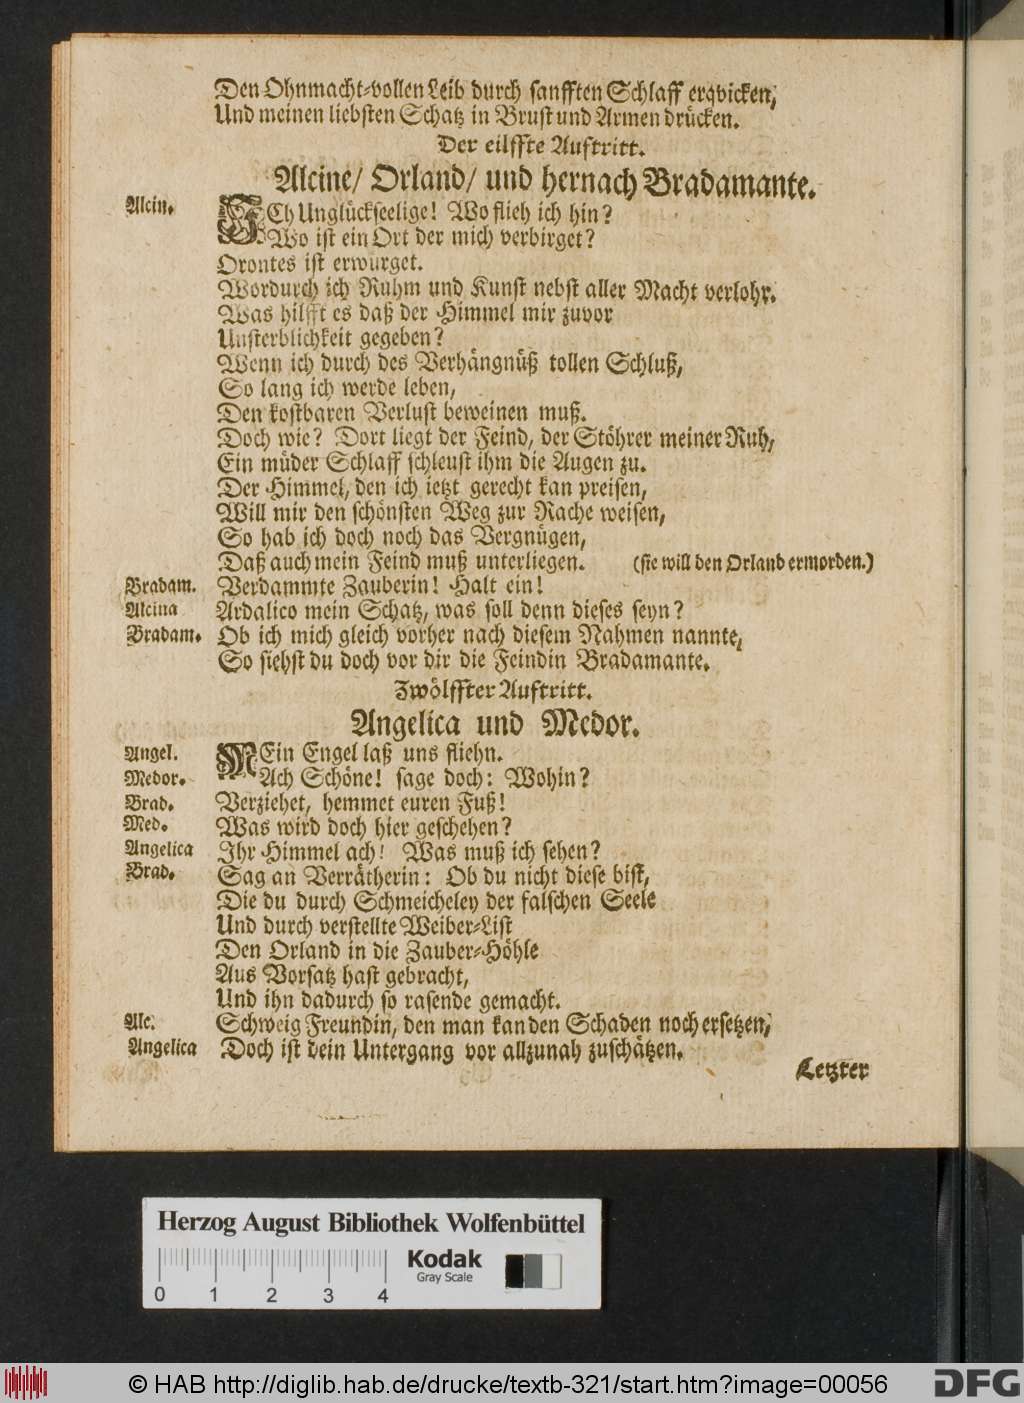 Den Ohnmacht-vollen Leib durch sanfften Schlaff erqvicken,
Und meinen liebsten Schatz in Brust und Armen drücken.
Der eilffte Auftritt.
Alcine/ Orland/ und hernach Bradamante.
Alcin. ICh Unglückseelige! Wo flieh ich hin?
Wo ist ein Ort der mich verbirget?
Orontes ist erwürget.
Wordurch ich Ruhm und Kunst nebst aller Macht verlohr.
Was hilfft es daß der Himmel mir zuvor
Unsterblichkeit gegeben?
Wenn ich durch des Verhängnüß tollen Schluß,
So lang ich werde leben,
Den kostbaren Verlust beweinen muß.
Doch wie? Dort liegt der Feind, der Stöhrer meiner Ruh,
Ein müder Schlaff schleust ihm die Augen zu.
Der Himmel, den ich ietzt gerecht kan preisen,
Will mir den schönsten Weg zur Rache weisen,
So hab ich doch noch das Vergnügen,
Daß auch mein Feind muß unterliegen. (sie will den Orland ermorden.)
Bradam. Verdammte Zauberin! Halt ein!
Alcina Ardalico mein Schatz, was soll denn dieses seyn?
Bradam. Ob ich mich gleich vorher nach diesem Nahmen nannte,
So siehst du doch vor dir die Feindin Bradamante.
Zwölffter Auftritt.
Angelica und Medor.
Angel. MEin Engel laß uns fliehn.
Medor. Ach Schöne! sage doch: Wohin?
Brad. Verziehet, hemmet euren Fuß!
Med. Was wird doch hier geschehen?
Angelica Ihr Himmel ach! Was muß ich sehen?
Brad. Sag an Verrätherin: Ob du nicht diese bist,
Die du durch Schmeicheley der falschen Seele
Und durch verstellte Weiber-List
Den Orland in die Zauber-Höhle
Aus Vorsatz hast gebracht,
Und ihn dadurch so rasende gemacht.
Alc. Schweig Freundin, den man kan den Schaden noch ersetzen,
Angelica Doch ist dein Untergang vor allzunah zuschätzen.
Letzter
Herzog August Bibliothek Wolfenbüttel
Kodak
Gray Scale
0 1 2 3 4
© HAB http://diglib.hab.de/drucke/textb-321/start.htm?image=00056
DFG